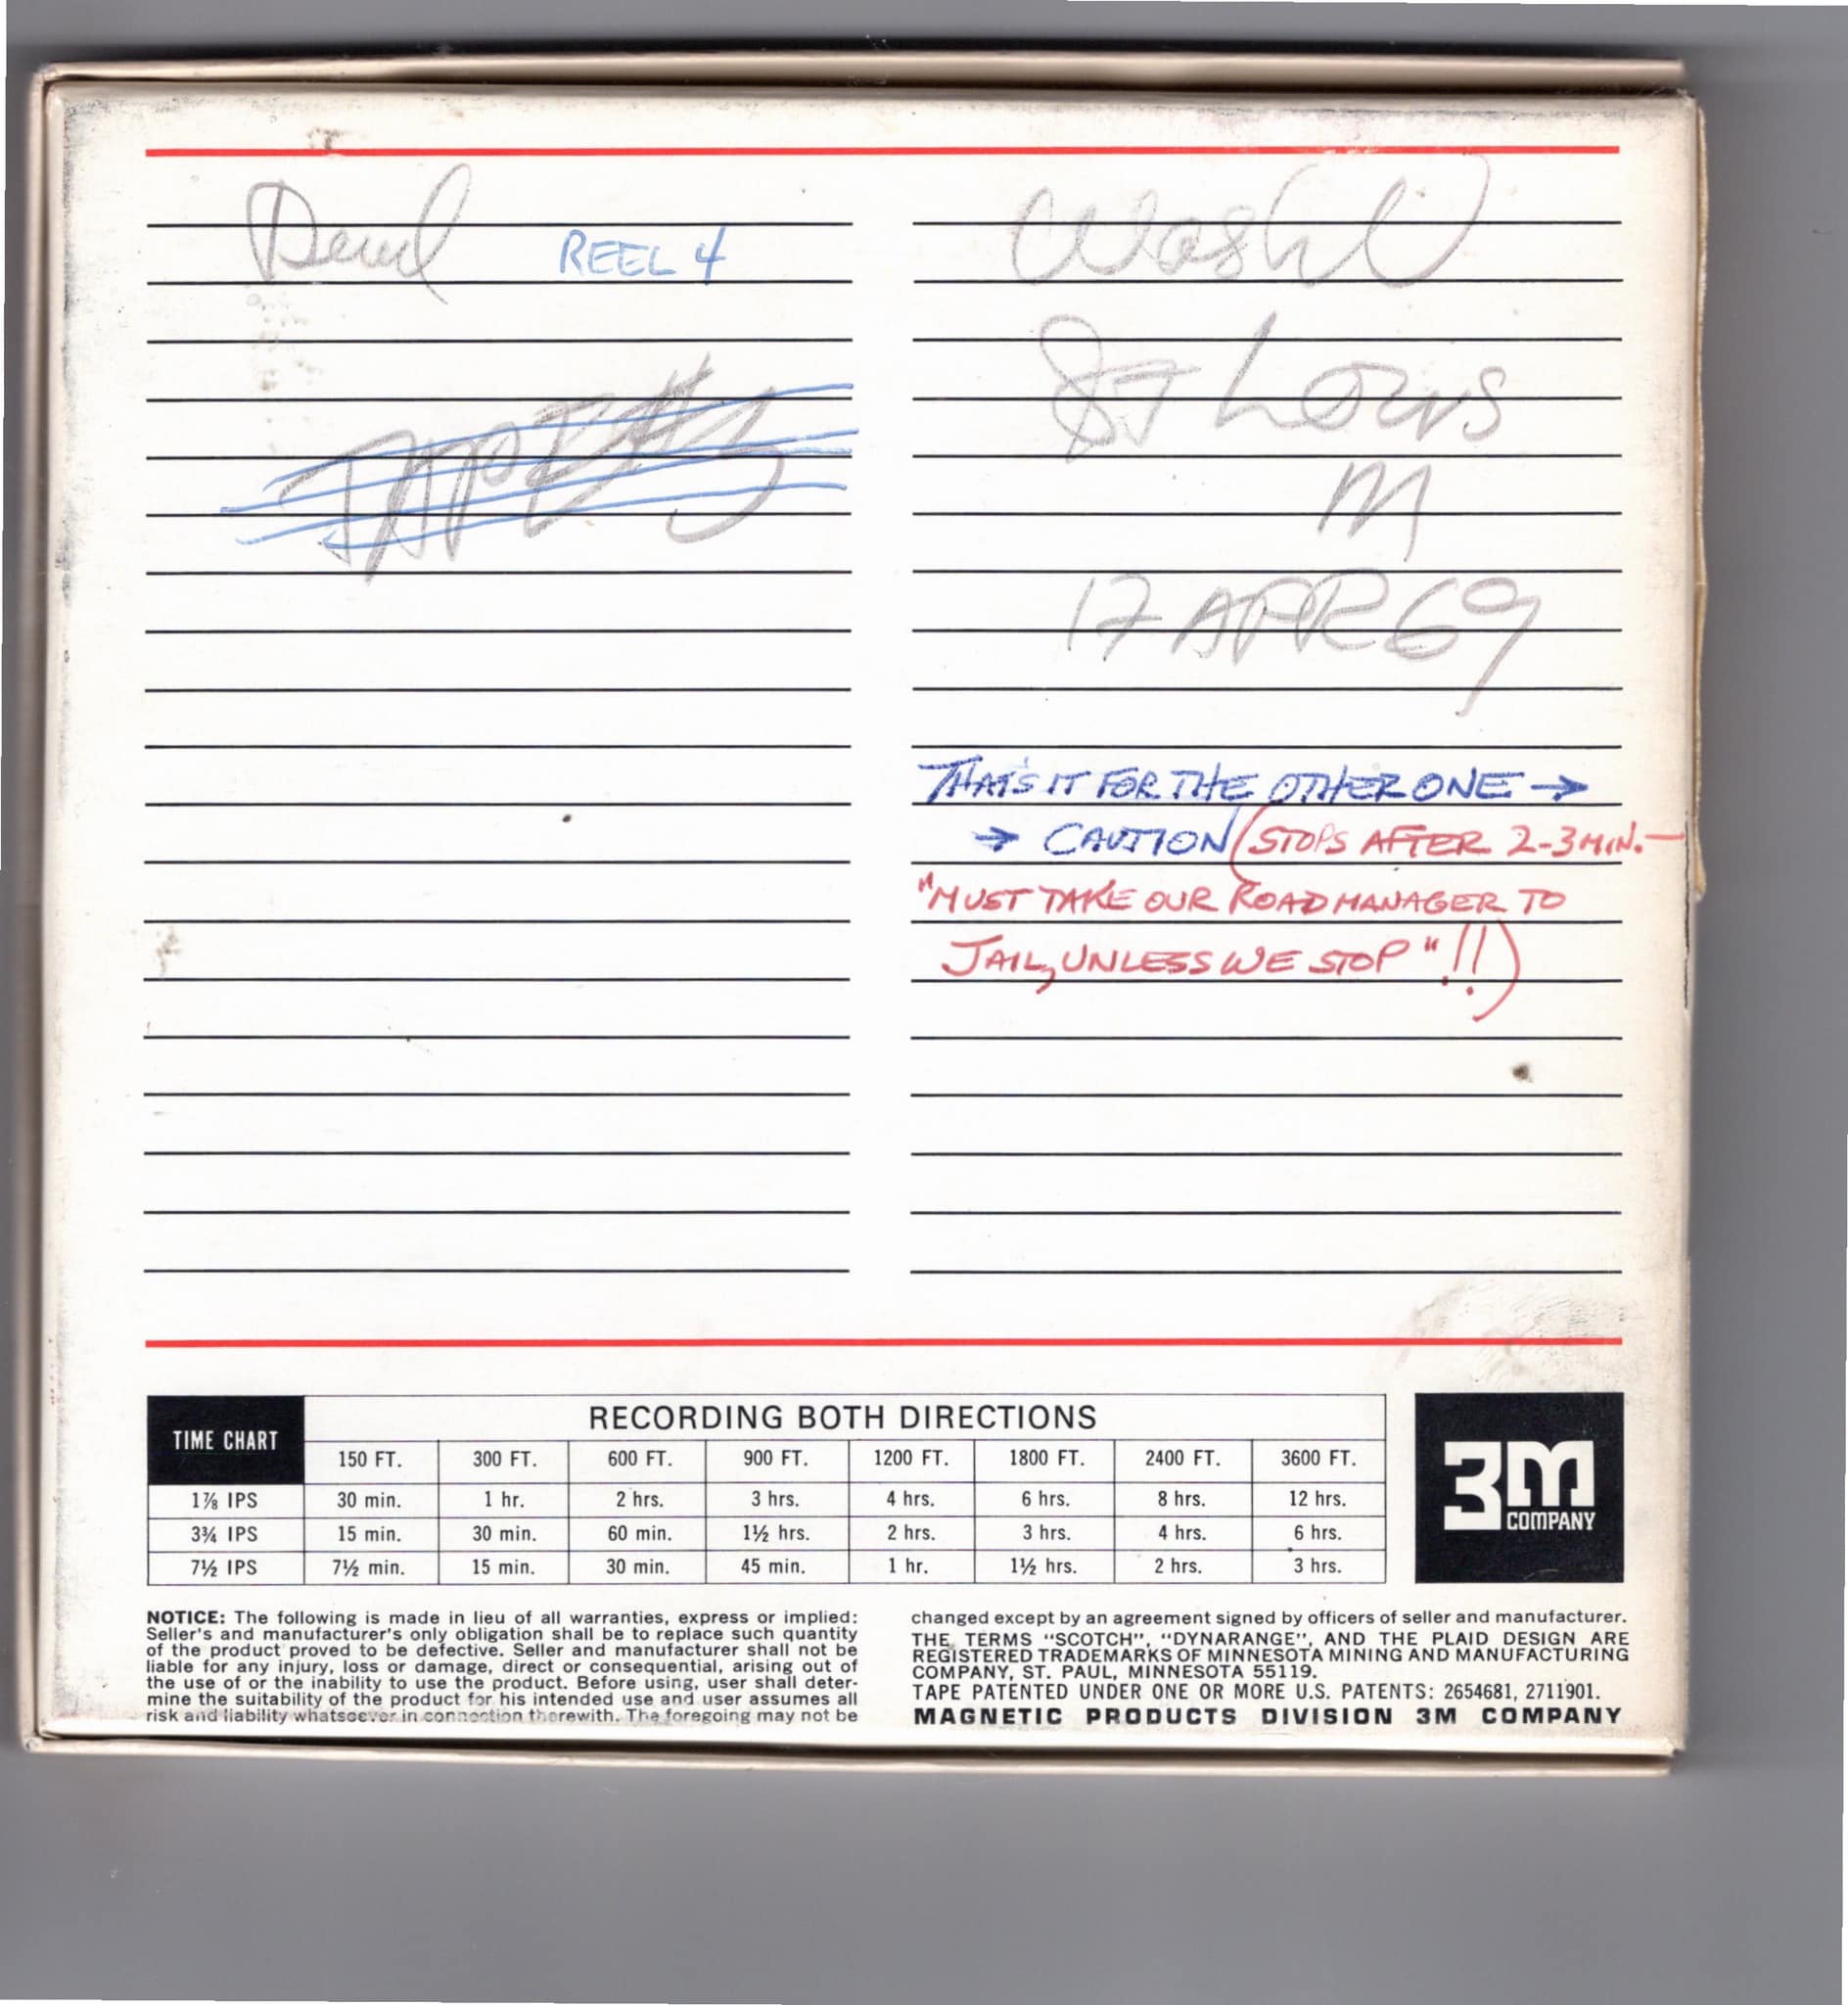 REEL 4
Wash U
St Louis
M
17 APR 69
THAT'S IT FOR THE OTHER ONE →
→ CAUTION (STOPS AFTER 2-3 MIN. —
"MUST TAKE OUR ROAD MANAGER TO
JAIL, UNLESS WE STOP" !!)
TIME CHART
RECORDING BOTH DIRECTIONS
150 FT. 300 FT. 600 FT. 900 FT. 1200 FT. 1800 FT. 2400 FT. 3600 FT.
1⅞ IPS 30 min. 1 hr. 2 hrs. 3 hrs. 4 hrs. 6 hrs. 8 hrs. 12 hrs.
3¾ IPS 15 min. 30 min. 60 min. 1½ hrs. 2 hrs. 3 hrs. 4 hrs. 6 hrs.
7½ IPS 7½ min. 15 min. 30 min. 45 min. 1 hr. 1½ hrs. 2 hrs. 3 hrs.
3M
COMPANY
NOTICE: The following is made in lieu of all warranties, express or implied:
Seller's and manufacturer's only obligation shall be to replace such quantity
of the product proved to be defective. Seller and manufacturer shall not be
liable for any injury, loss or damage, direct or consequential, arising out of
the use of or the inability to use the product. Before using, user shall deter-
mine the suitability of the product for his intended use and user assumes all
risk and liability whatsoever in connection therewith. The foregoing may not be
changed except by an agreement signed by officers of seller and manufacturer.
THE TERMS "SCOTCH", "DYNARANGE", AND THE PLAID DESIGN ARE
REGISTERED TRADEMARKS OF MINNESOTA MINING AND MANUFACTURING
COMPANY, ST. PAUL, MINNESOTA 55119.
TAPE PATENTED UNDER ONE OR MORE U.S. PATENTS: 2654681, 2711901.
MAGNETIC PRODUCTS DIVISION 3M COMPANY